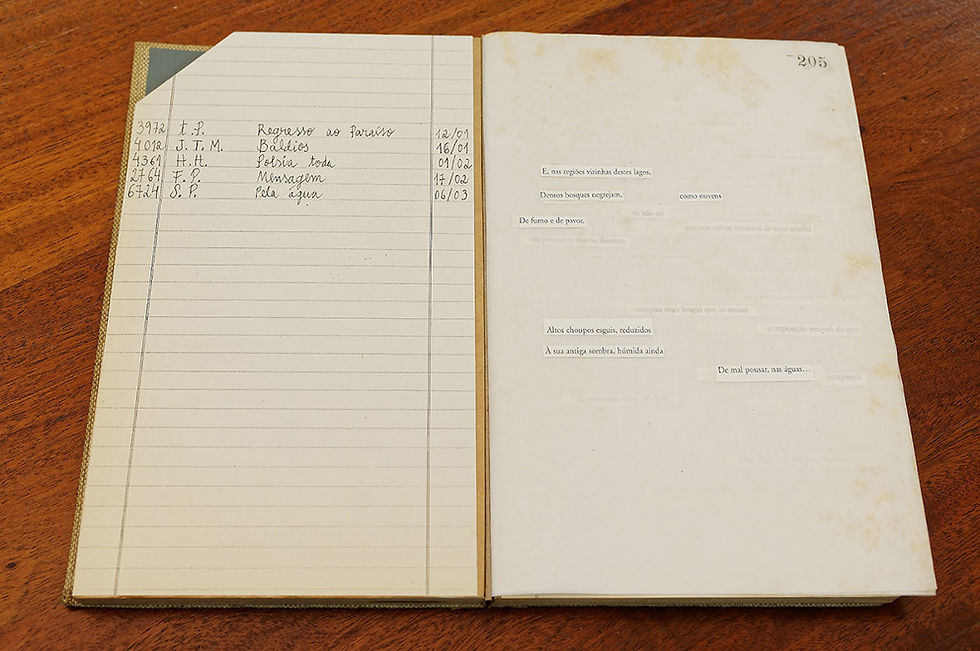 3972 T.P. Regresso ao Paraíso 12/01
4012 J.T.M. Baldios 16/01
4361 H.H. Poesia toda 01/02
2764 F.P. Mensagem 17/02
6724 S.P. Pela água 06/03
205
E, nas regiões vizinhas destes lagos,
Densos bosques negrejam, como nuvens
De fumo e de pavor.
Altos choupos esguis, reduzidos
À sua antiga sombra, húmida ainda
De mal pousar, nas águas...